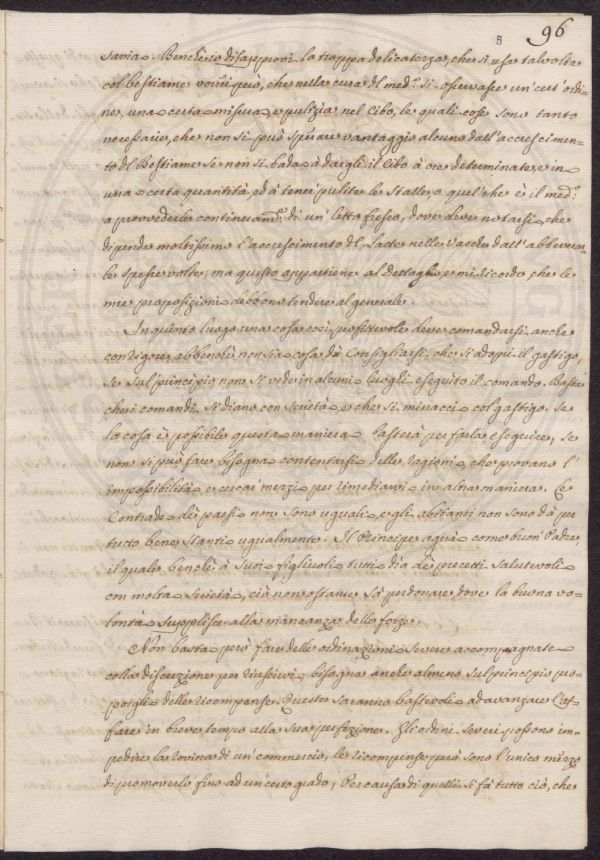 5 96
saria. Benchè io disapprovi la troppa delicatezza, che si usa talvolta
col bestiame vorrei però, che nella cura del med.º si osservasse un cert'ordi=
ne, una certa misura, e pulizia nel Cibo, le quali cose sono tanto
necessarie, che non si può sperare vantaggio alcuno dall'accrescimen=
to del Bestiame se non si bada à dargli il Cibo à ore determinate, e in
una certa quantità, ed à tener pulite le Stalle, o quel che è il med.º
a provvederle continuam.e di un letto fresco, dove deve notarsi, che
dipende moltissimo l'accrescimento del Latte nelle Vacche dall'abbeverar
le spesse volte; ma questo appartiene al Dettaglio, e mi ricordo, che le
mie proposizioni debbono tendere al generale.
In quinto luogo una cosa così profittevole deve comandarsi anche
con rigore, abbenchè non sia cosa da Consigliarsi che si adopri il gastigo,
se sul principio non si vede in alcuni luoghi eseguito il comando. Basta
che i comandi si diano con serietà, e che si minacci col gastigo. Se
la cosa è possibile questa maniera basterà per farla eseguire, se
non si può fare bisogna contentarsi delle ragioni, che provano l'
impossibilità, e cercar mezzi per rimediarvi in altra maniera. Le
Contrade dei paesi non sono uguali, e gli abitanti non sono da per
tutto bene stanti ugualmente. Il Principe agirà come buon Padre,
il quale benchè à suoi figlivoli tutti dia dei precetti salutevoli
con molta serietà, ciò non ostante sà perdonare dove la buona vo=
lontà supplisce alla mancanza delle forze.
Non basta però fare delle ordinazioni severe accompagnate
colla discrezione per riuscirvi, bisogna anche almeno sul principio pro=
porgli delle ricompense. Queste saranno bastevoli ad avanzare l'af=
fare in breve tempo alla sua perfezione. Gli ordini severi possono im=
pedire la rovina di un commercio, le ricompense però sono l'unico mezzo
di promoverlo fino ad un certo grado; Per causa di quelli si fà tutto ciò, che